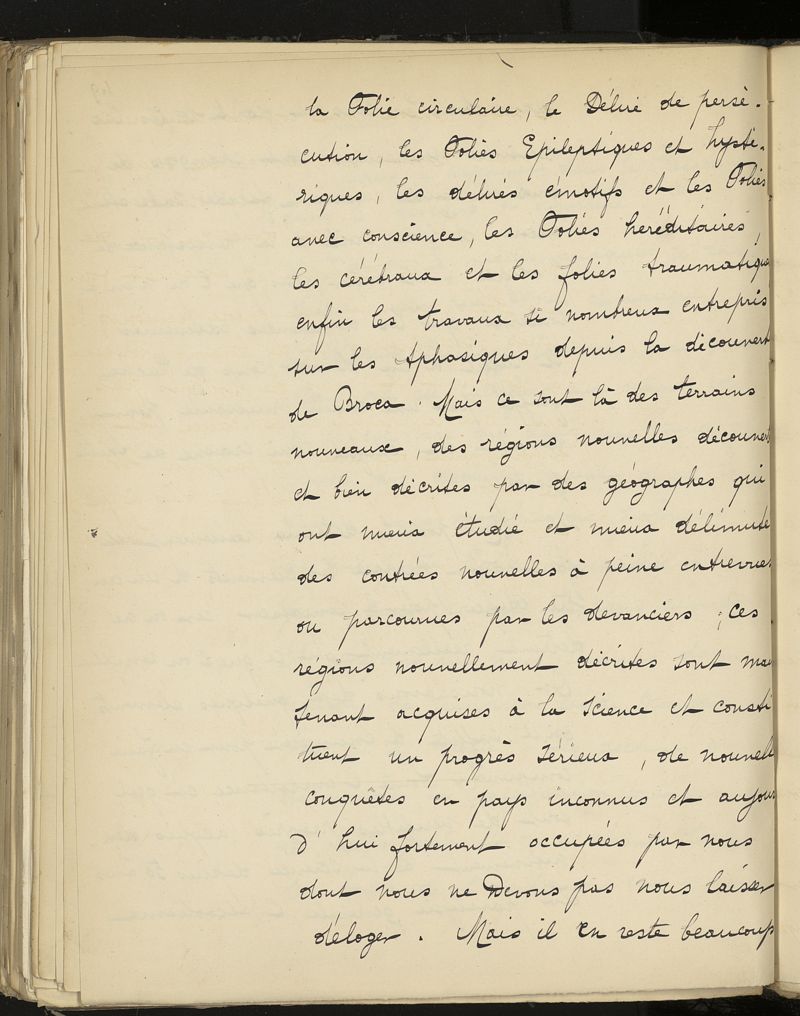 la Folie circulaire, le Délire de persé-
cution, les Folies Epileptiques et hysté-
riques, les délires émotifs et les Folies
avec conscience, les Folies héréditaires,
les cérébraux et les folies traumatique
enfin les travaux si nombreux entrepris
sur les Aphasiques depuis la découvert
de Broca. Mais ce sont là des terrains
nouveaux, des régions nouvelles découvert
et bien décrites par des géographes qui
ont mieux étudié et mieux délimité
des contrées nouvelles à peine entrevues
ou parcourues par les devanciers ; ces
régions nouvellement décrites sont mai
tenant acquises à la science et consti
tuent un progrès sérieux, de nouvell
conquêtes en pays inconnus et aujour
d'hui fortement occupées par nous
dont nous ne Devons pas nous laisser
déloger. Mais il en reste beaucoup